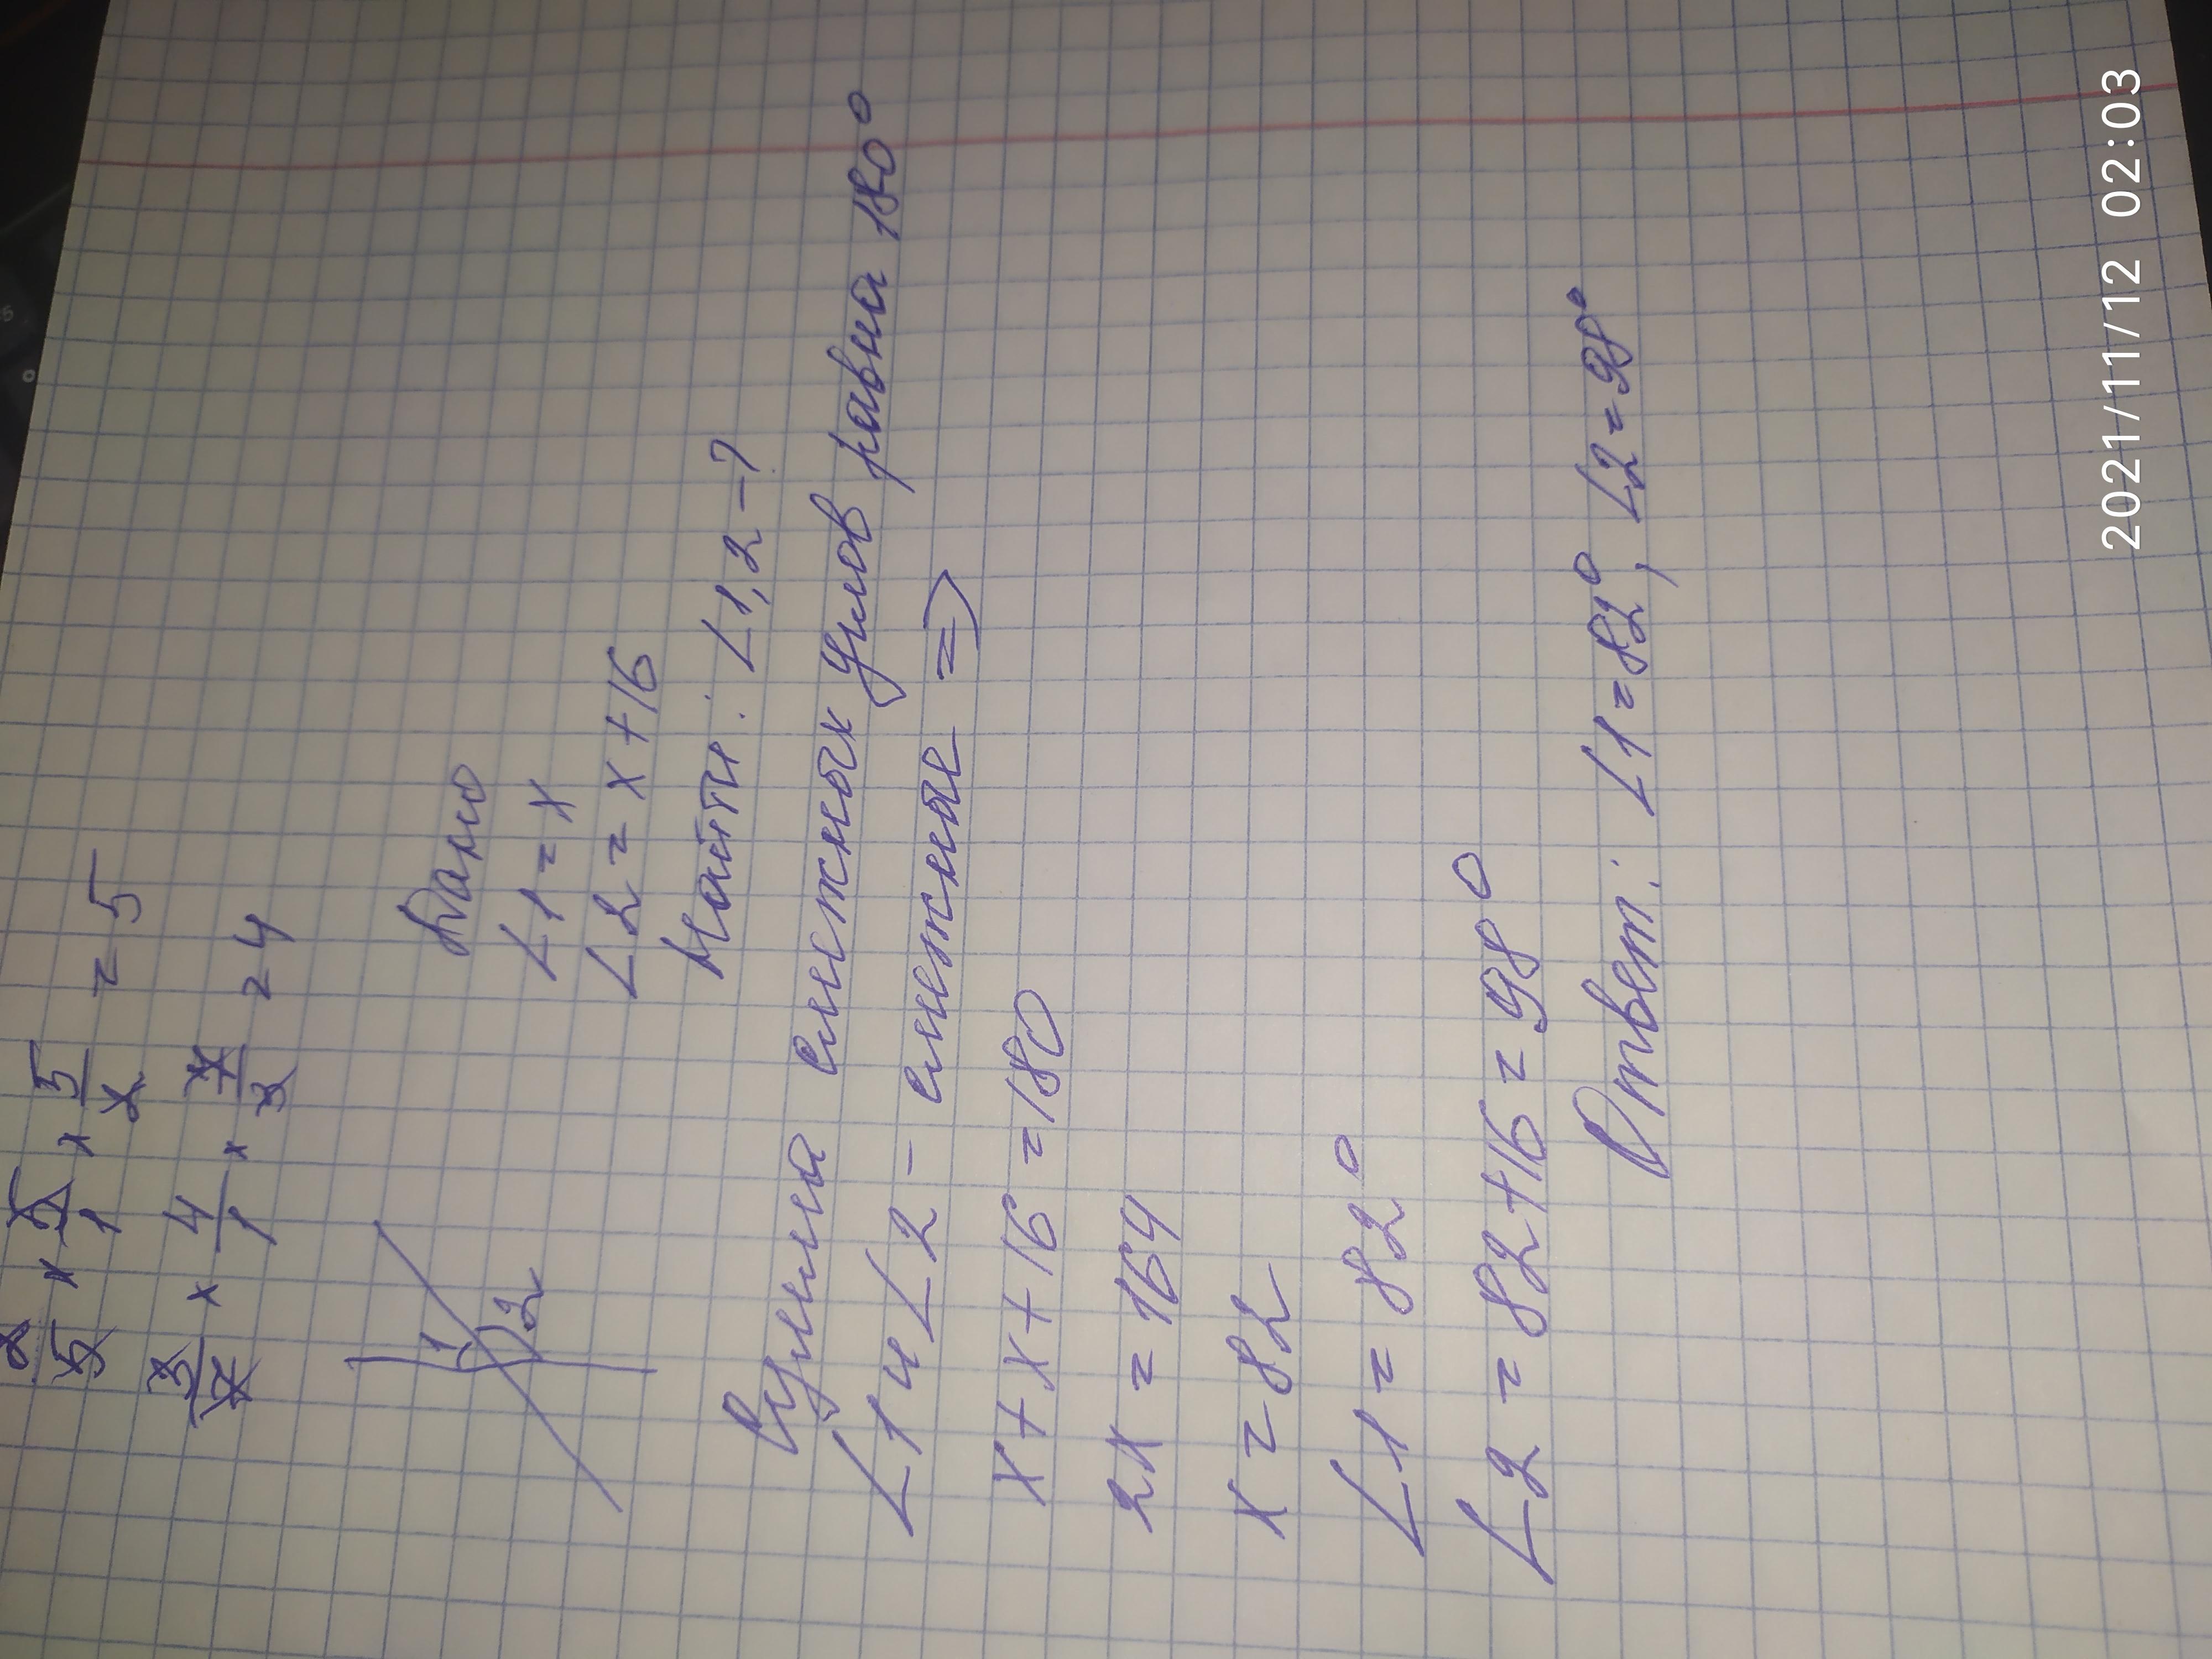 2/5 × 5/1 × 5/2 = 5
3/7 × 4/1 × 7/3 = 4
Дано
∠1 = x
∠2 = x + 16
Найти: ∠1,2 - ?
1
2
Сумма смежных углов равна 180°
∠1 и ∠2 - смежные =>
x + x + 16 = 180
2x = 164
x = 82
∠1 = 82°
∠2 = 82 + 16 = 98°
Ответ: ∠1 = 82°, ∠2 = 98°
2021/11/12 02:03